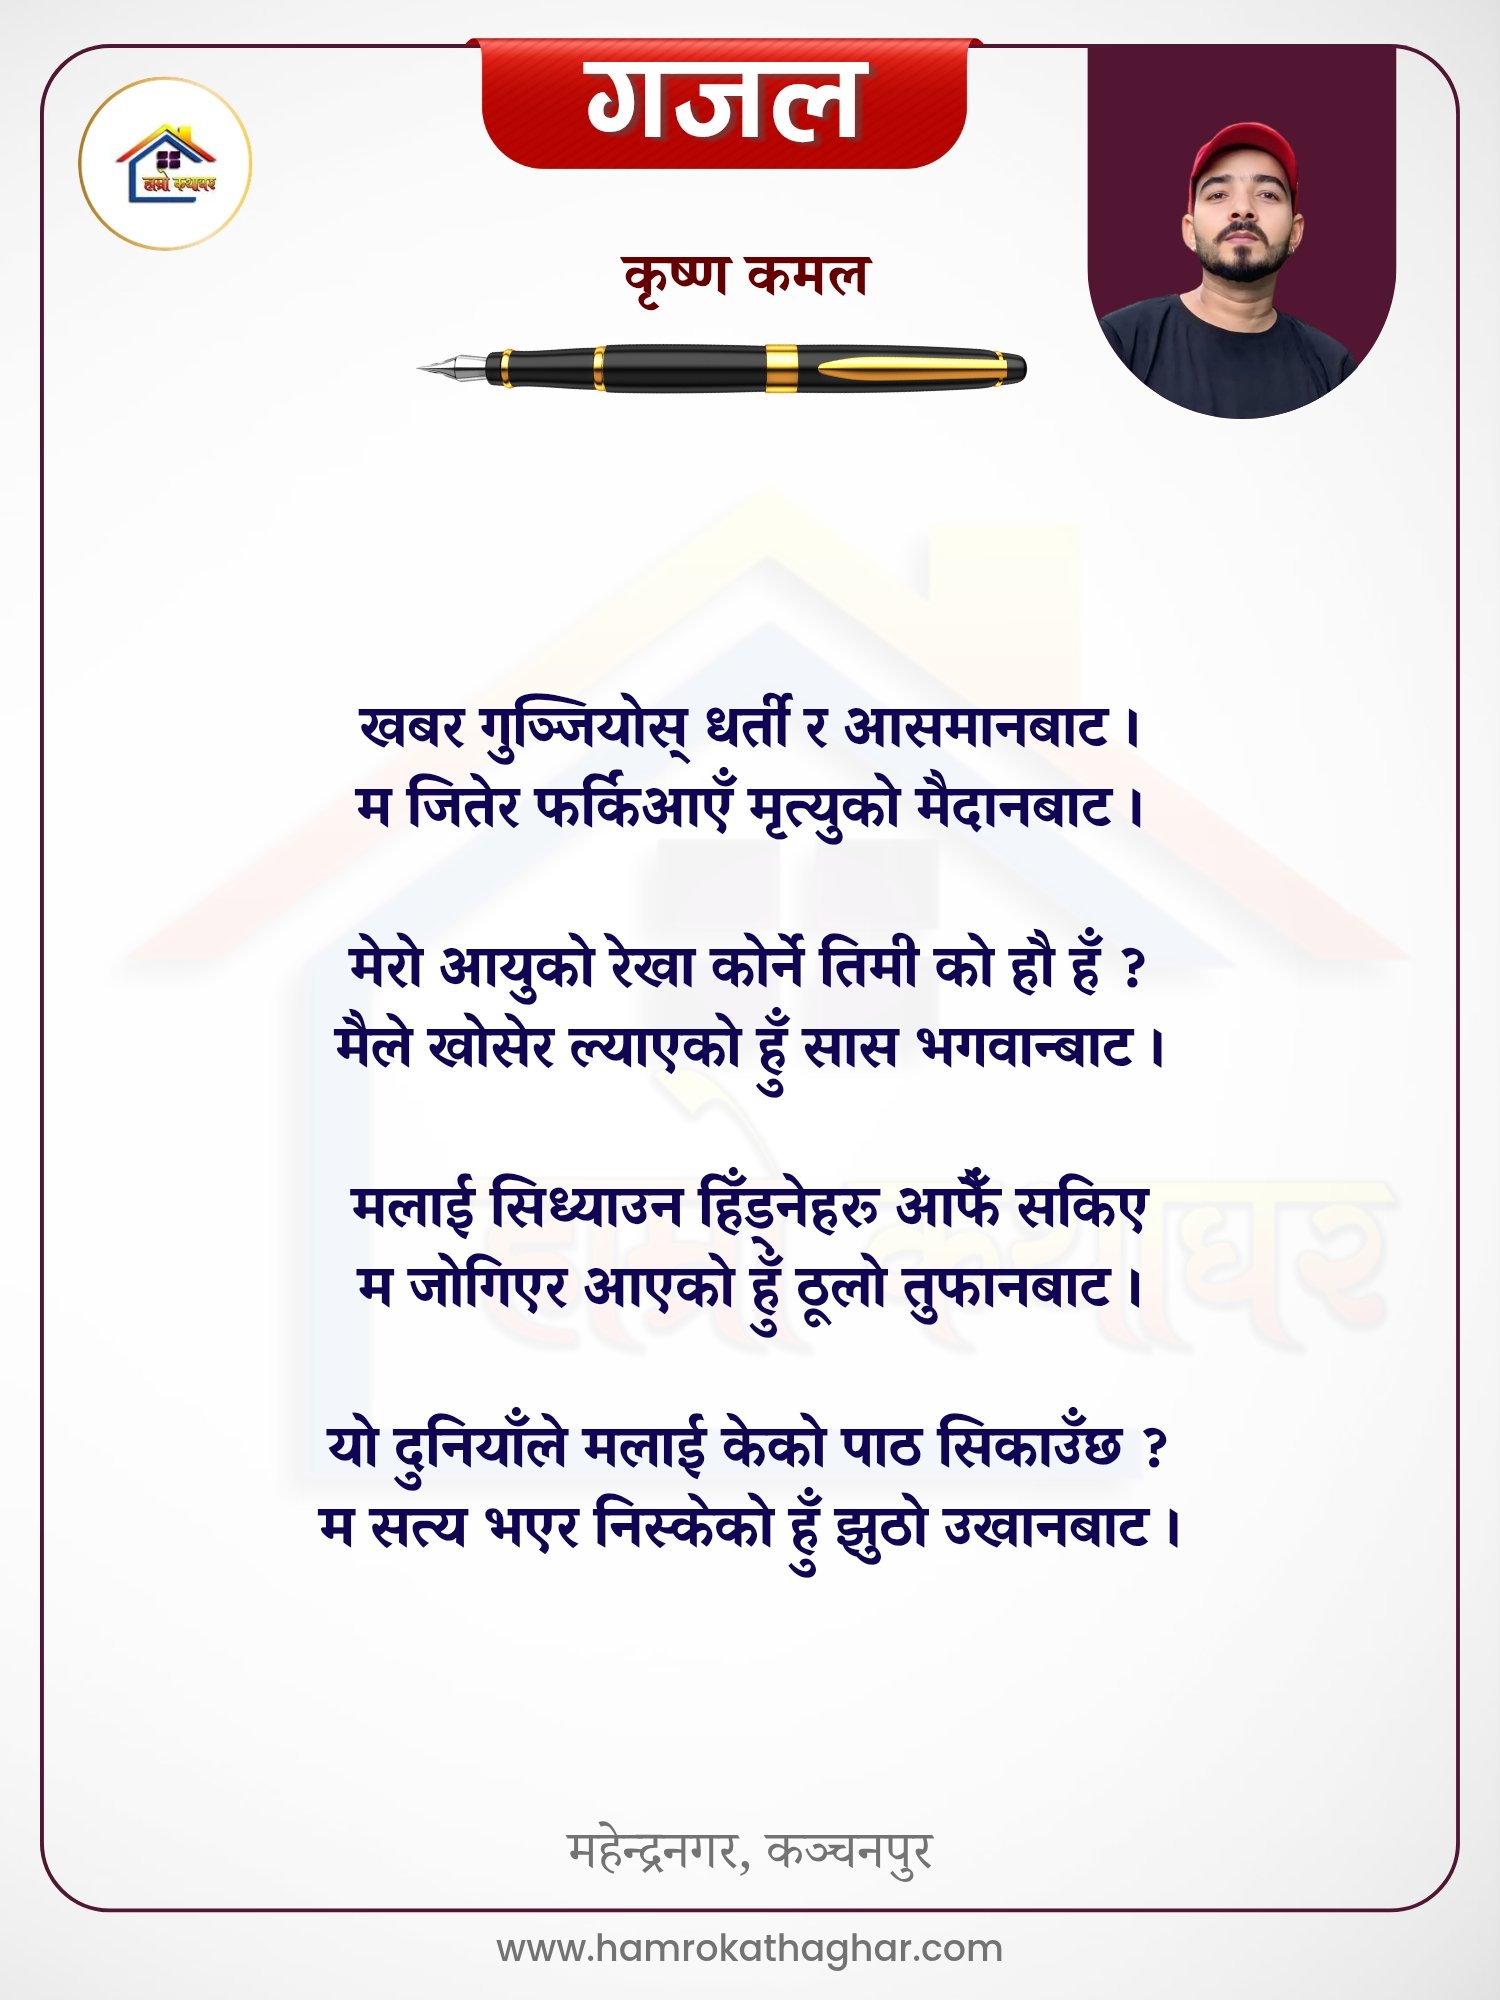 गजल
हाम्रो कथाघर
कृष्ण कमल
खबर गुञ्जियोस् धर्ती र आसमानबाट ।
म जितेर फर्किआएँ मृत्युको मैदानबाट ।
मेरो आयुको रेखा कोर्ने तिमी को हौ हँ ?
मैले खोसेर ल्याएको हुँ सास भगवान्बाट ।
मलाई सिध्याउन हिँड्नेहरू आफैँ सकिए
म जोगिएर आएको हुँ ठूलो तुफानबाट ।
यो दुनियाँले मलाई केको पाठ सिकाउँछ ?
म सत्य भएर निस्केको हुँ झुठो उखानबाट ।
हाम्रो कथाघर
महेन्द्रनगर, कञ्चनपुर
www.hamrokathaghar.com